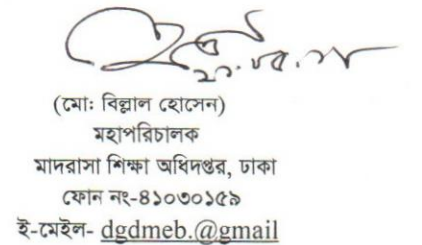 (মো: বিল্লাল হোসেন)
মহাপরিচালক
মাদরাসা শিক্ষা অধিদপ্তর, ঢাকা
ফোন নং-৪১০৩০১৫৯
ই-মেইল- dgdmeb.@gmail